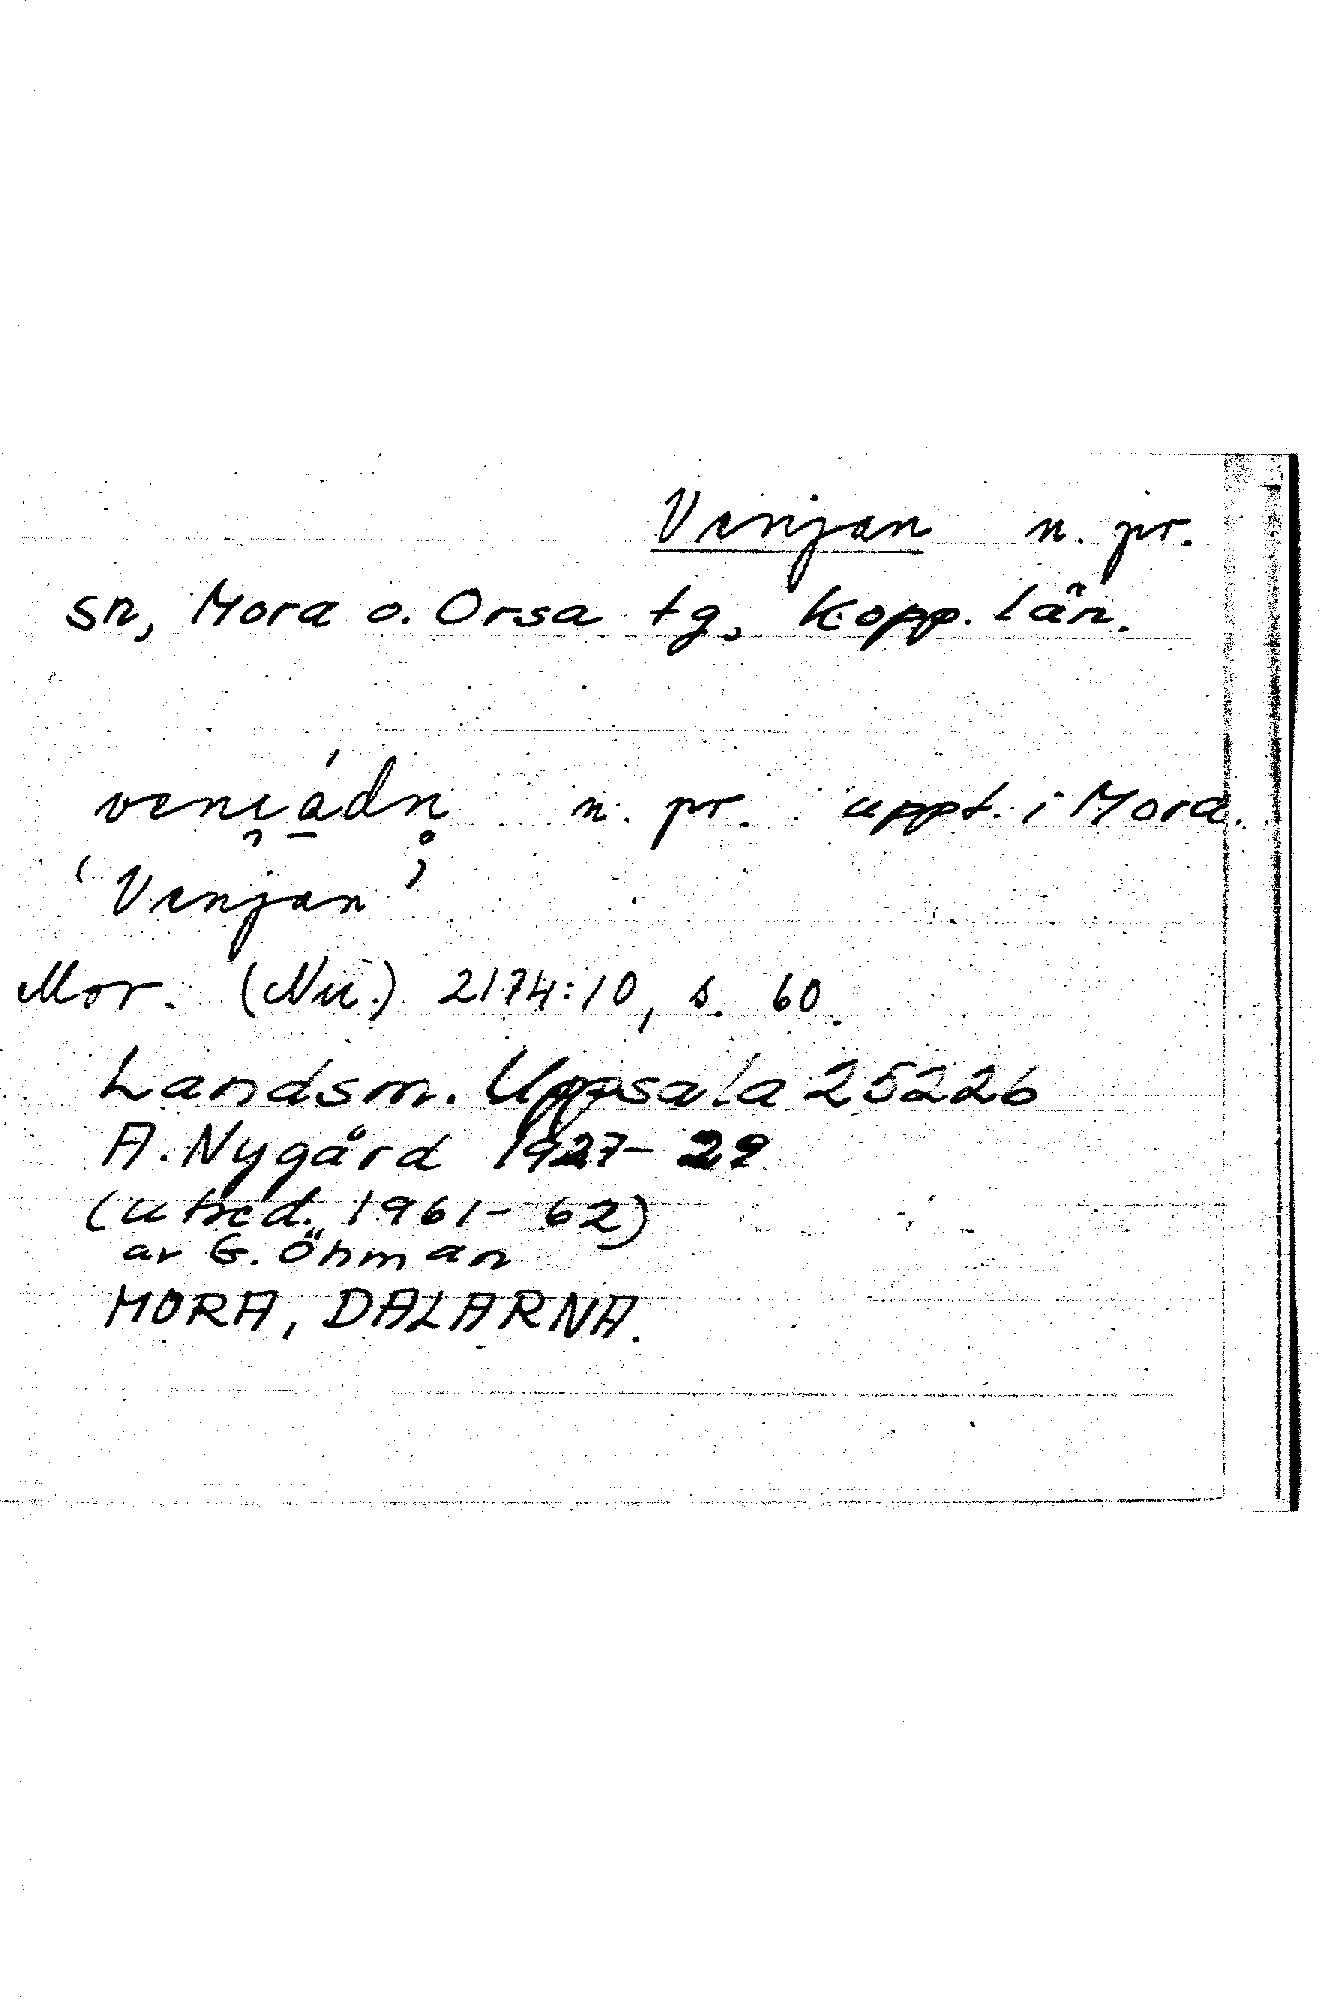 Venjan n. pr.
sn, Mora o. Orsa tg, Kopp. län.
n. pr. uppt. i Mora.
'Venjan'
Mor. (Nu.) 2174:10, s. 60.
Landsm. Uppsala 25226
A. Nygård 1927-29
(utred. 1961-62)
av G. Öhman
MORA, DALARNA.